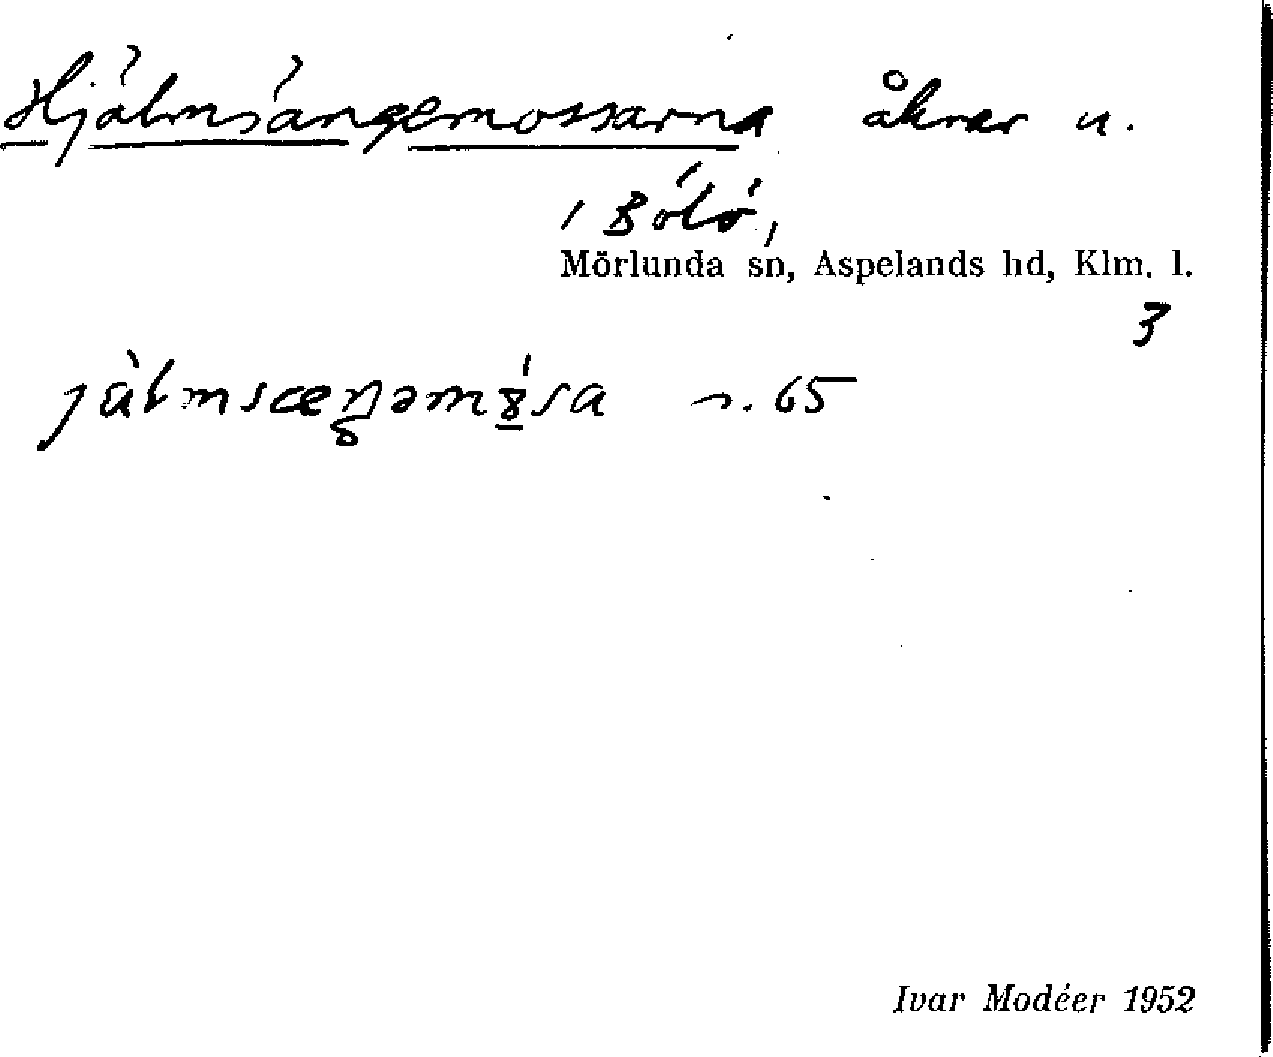 Hjälmsängemossarna åkrar u.
1 Bölö,
Mörlunda sn, Aspelands hd, Klm. l.
3
n. 65
Ivar Modéer 1952